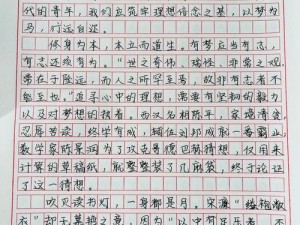 代的青年，我们应筑牢理想信念之基，以梦为
马，行远自迩。
修身为本，本立而道生。有梦应当有志，
有志还须有为。"世之奇伟、瑰怪、非常之观，
常在于险远，而人之所罕至焉，故非有志者不
能至也。"追寻心中的理想，需要有坚韧的毅力
以及对梦想的执着。西汉名相陈平，家境清贫，
忍辱苦读，终学有成，辅佐刘邦成就一番霸业；
数学家陈景润为了攻克哥德巴赫猜想，仅用来
计算的草稿纸，就整整装了几麻袋，终于论证
了这一猜想。
吹灭读书灯，一身都是月，宋濂"缊袍敝
衣"却无慕艳之意，因为"以中有足乐者，不